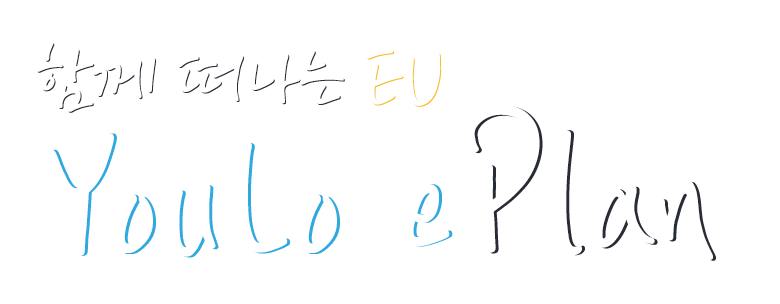 함께 떠나는 EU
Youlo ePlan